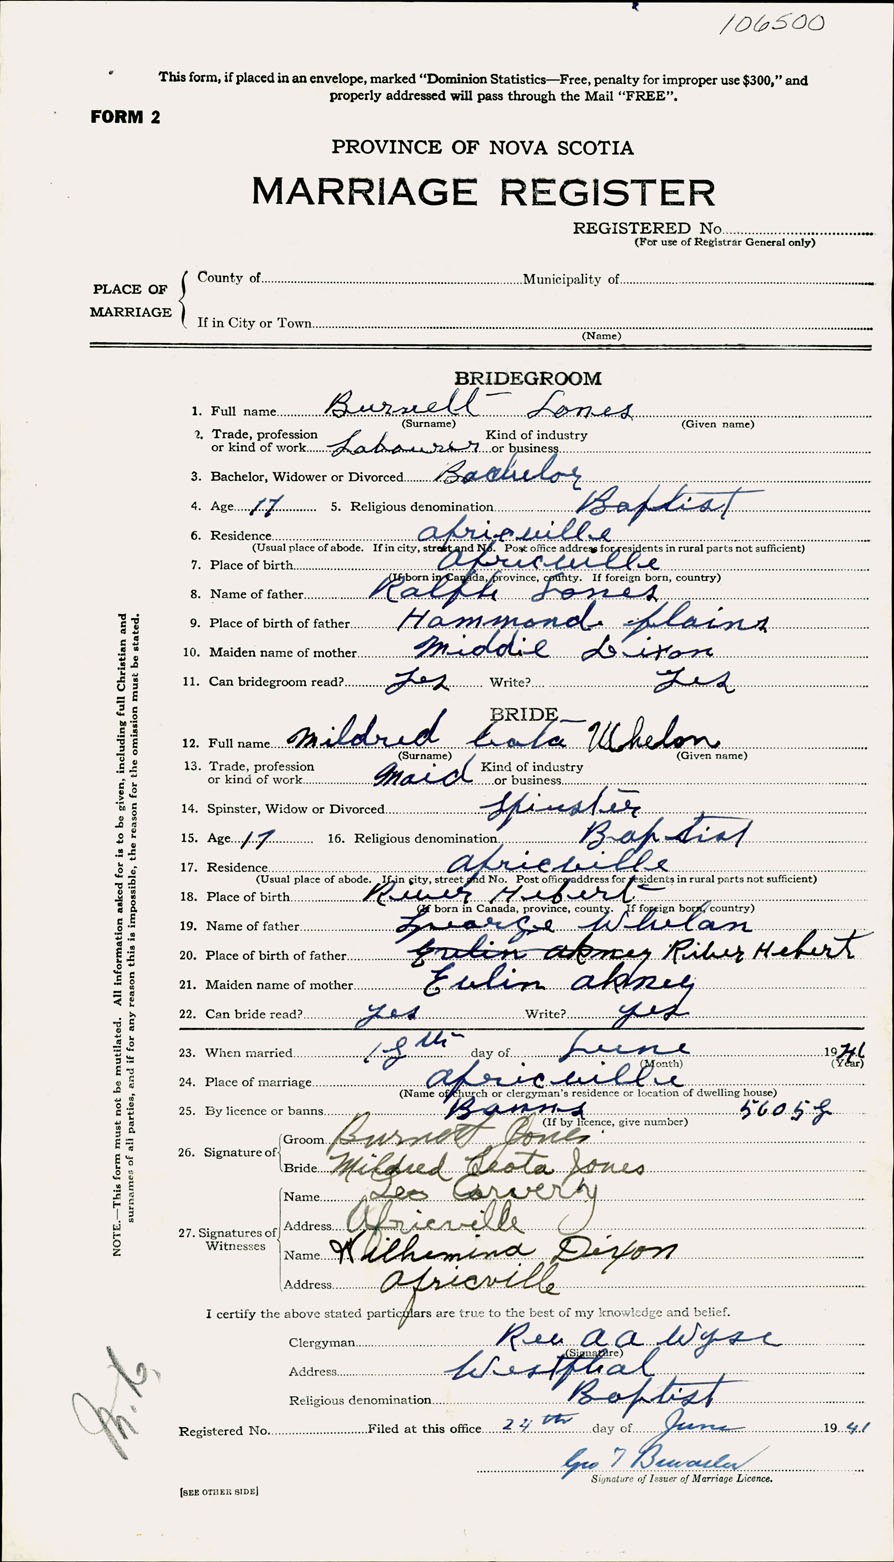 106500
This form, if placed in an envelope, marked "Dominion Statistics—Free, penalty for improper use $300," and
properly addressed will pass through the Mail "FREE".
FORM 2
PROVINCE OF NOVA SCOTIA
MARRIAGE REGISTER
REGISTERED No.
(For use of Registrar General only)
PLACE OF MARRIAGE
County of Municipality of
If in City or Town
(Name)
BRIDEGROOM
1. Full name Burnell Jones
(Surname) (Given name)
2. Trade, profession or kind of work Labourer Kind of industry or business
3. Bachelor, Widower or Divorced Bachelor
4. Age 17 5. Religious denomination Baptist
6. Residence Africville
(Usual place of abode. If in city, street and No. Post office address for residents in rural parts not sufficient)
7. Place of birth Africville
(If born in Canada, province, county. If foreign born, country)
8. Name of father Ralph Jones
9. Place of birth of father Hammond plains
10. Maiden name of mother Middie Dixon
11. Can bridegroom read? Yes Write? Yes
BRIDE
12. Full name Mildred Leota Whelon
(Surname) (Given name)
13. Trade, profession or kind of work Maid Kind of industry or business
14. Spinster, Widow or Divorced Spinster
15. Age 17 16. Religious denomination Baptist
17. Residence Africville
(Usual place of abode. If in city, street and No. Post office address for residents in rural parts not sufficient)
18. Place of birth River Hebert
(If born in Canada, province, county. If foreign born, country)
19. Name of father George Whelan
20. Place of birth of father Eulin akney River Hebert
21. Maiden name of mother Eulin akney
22. Can bride read? Yes Write? yes
23. When married 18th day of June 1941
(Month) (Year)
24. Place of marriage Africville
(Name of church or clergyman's residence or location of dwelling house)
25. By licence or banns Banns 56058
(If by licence, give number)
26. Signature of
Groom Burnell Jones
Bride Mildred Leota Jones
27. Signatures of Witnesses
Name Leo Carvery
Address Africville
Name Wilhemina Dixon
Address Africville
I certify the above stated particulars are true to the best of my knowledge and belief.
Clergyman Rev A A Wyse
(Signature)
Address Westphal
Religious denomination Baptist
Registered No. Filed at this office 24th day of June 1941
Geo T
Signature of Issuer of Marriage Licence.
[SEE OTHER SIDE]
NOTE.—This form must not be mutilated. All information asked for is to be given, including full Christian and
surnames of all parties, and if for any reason this is impossible, the reason for the omission must be stated.